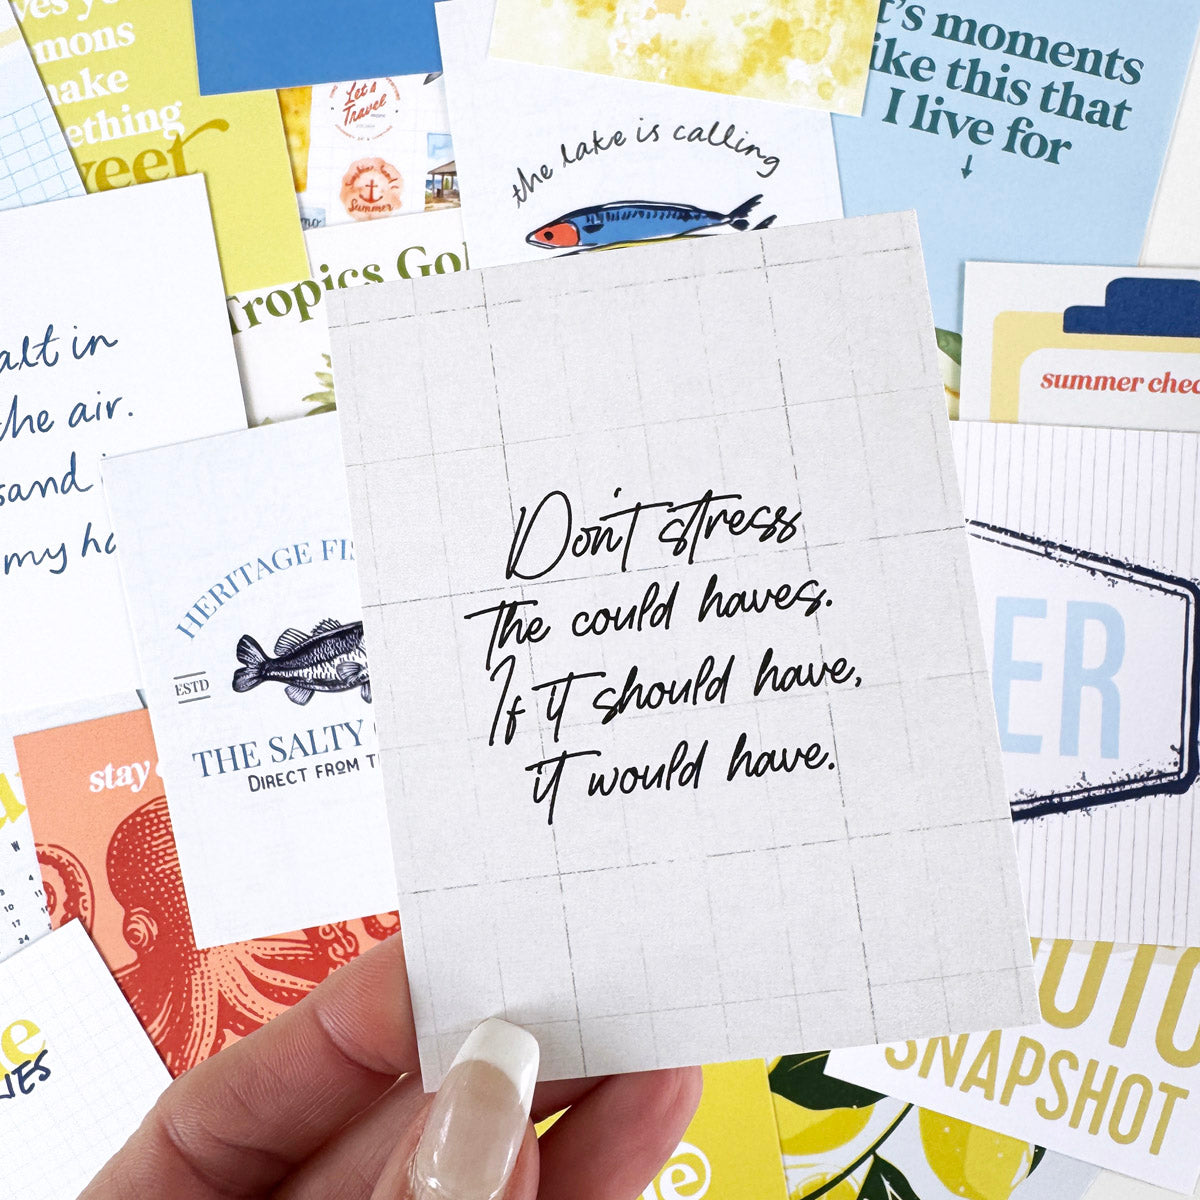 mons
make
something
sweet
Let's
Travel
Summer
the lake is calling
it's moments
like this that
I live for
↓
Tropics
salt in
the air.
sand
my
summer
HERITAGE
ESTD
THE SALTY
DIRECT FROM
Don't stress
The could haves.
If it should have,
it would have.
stay
W
10
17
24
SNAPSHOT